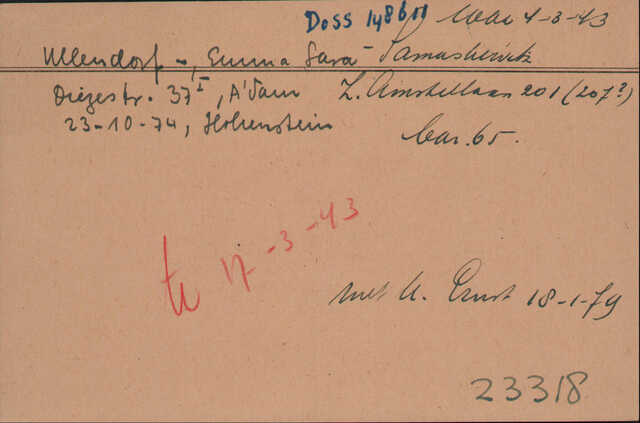 Doss 148611 WBK 4-3-43
Ullendorf-, Emma Sara
Diezestr. 37 I, A'dam Z. Amstellaan 201 (207?)
23-10-74, Hohenstein bar. 65.
tr 17-3-43
met U. Ernst 18-1-79
23318